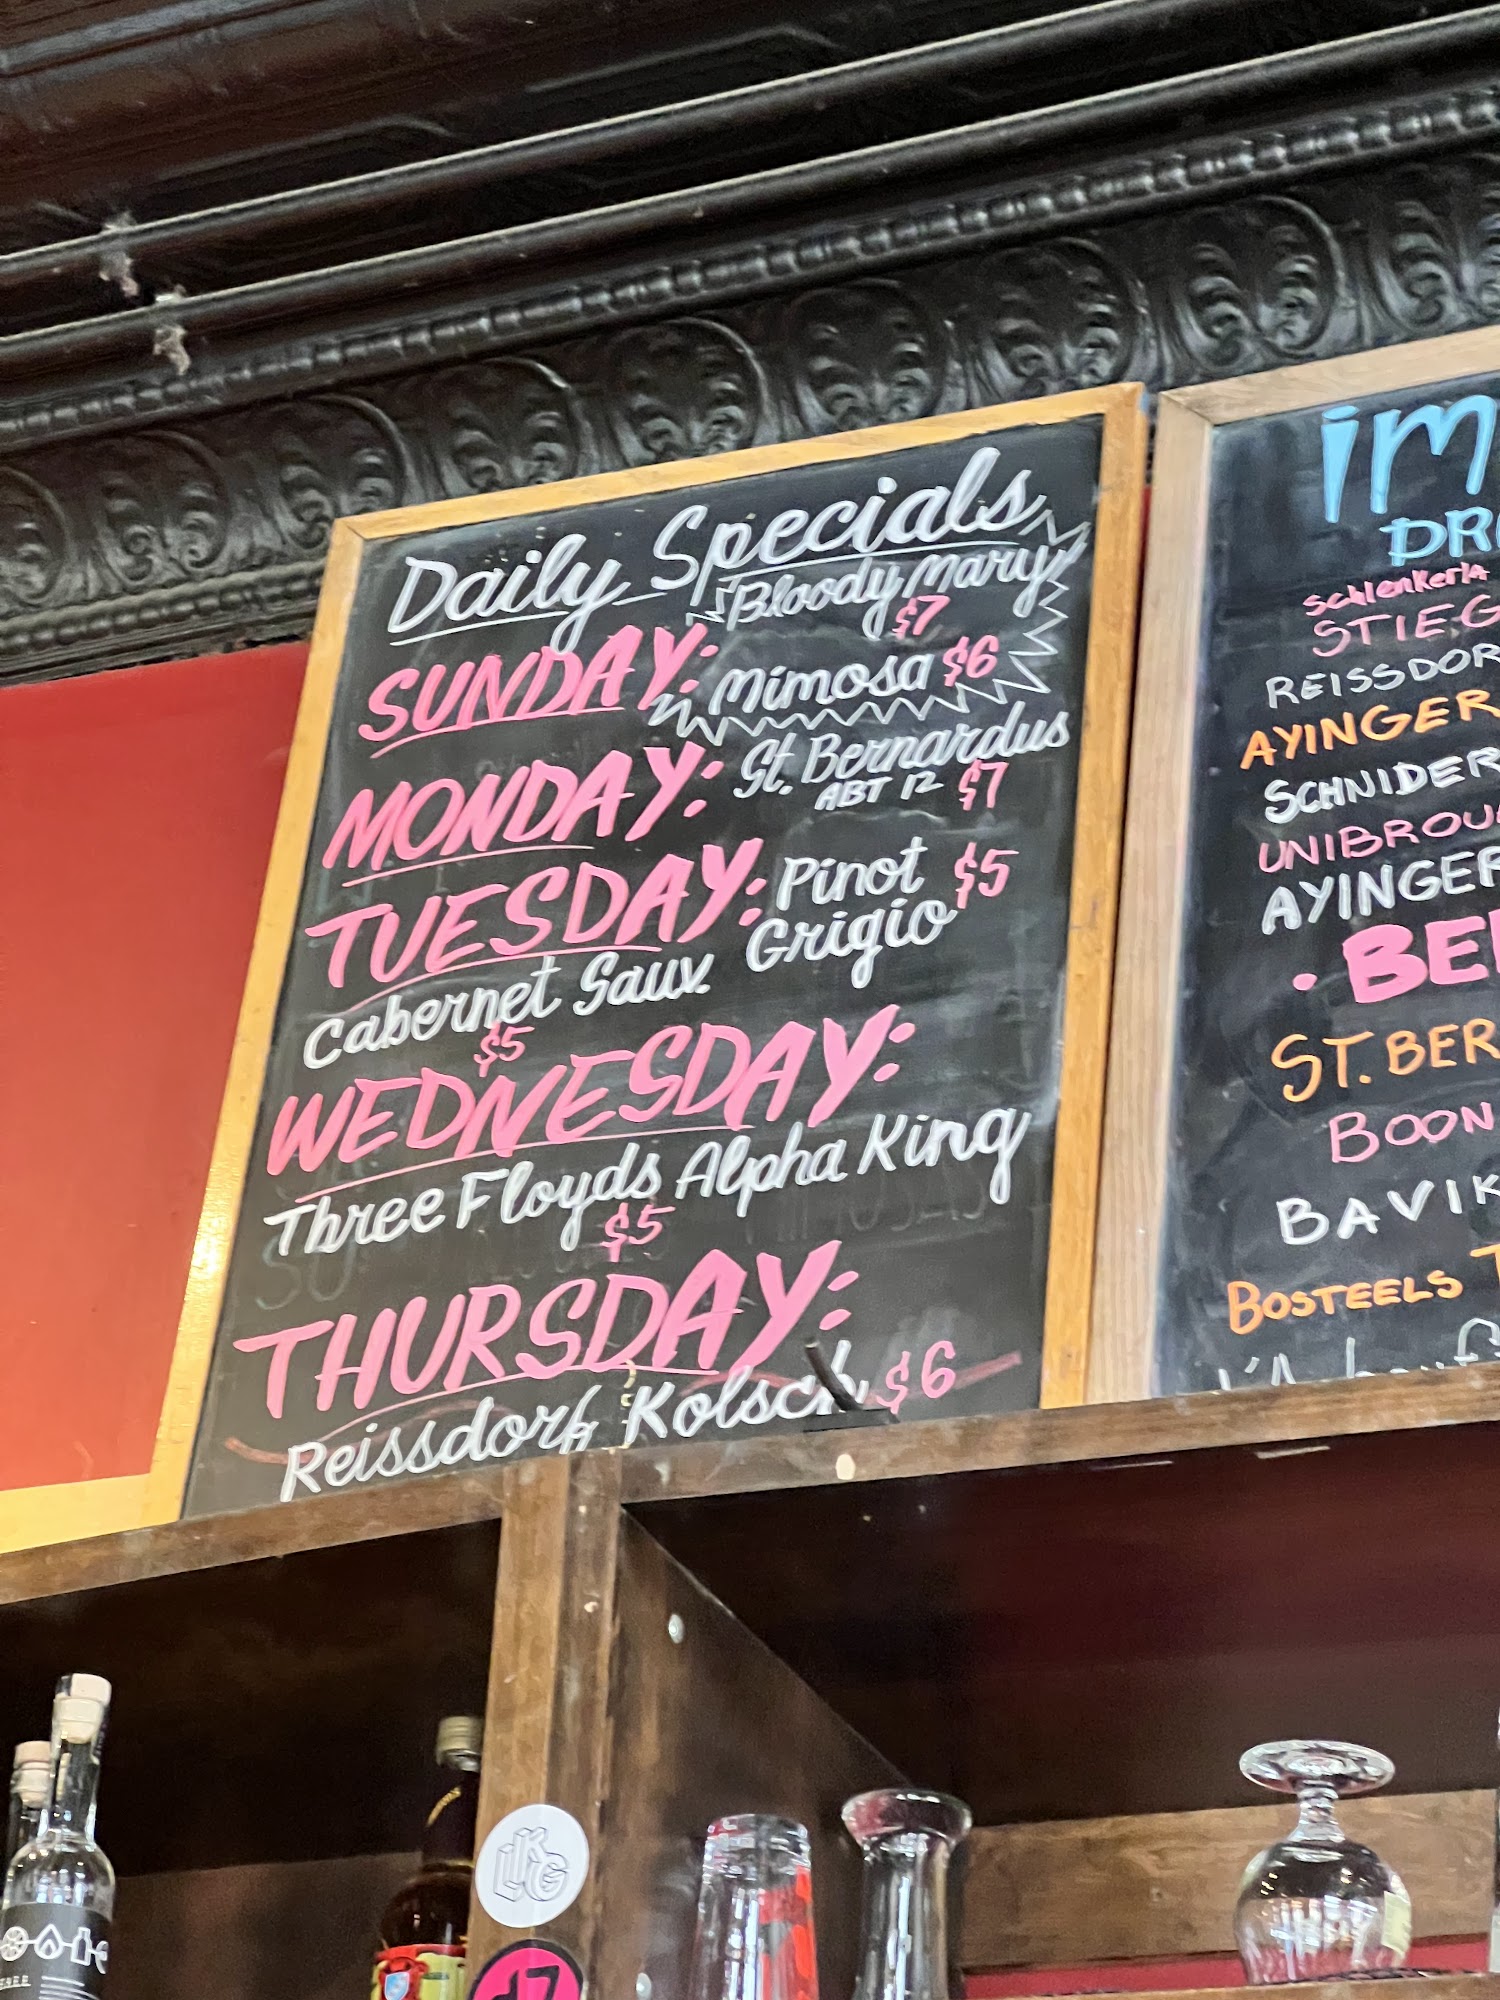 Daily Specials
SUNDAY: Bloody Mary
$7
Mimosa $6
MONDAY: St. Bernardus
ABT 12 $7
TUESDAY: Pinot $5
Grigio
Cabernet Sauv.
$5
WEDNESDAY:
Three Floyds Alpha King
$5
THURSDAY:
Reissdorf Kolsch $6
im
DR
SCHlenKerlA
STIEG
REISSDOR
AYINGER
SCHNIDER
UNIBROU
AYINGER
• BE
ST. BER
BOON
BAVIK
BOSTEELS T